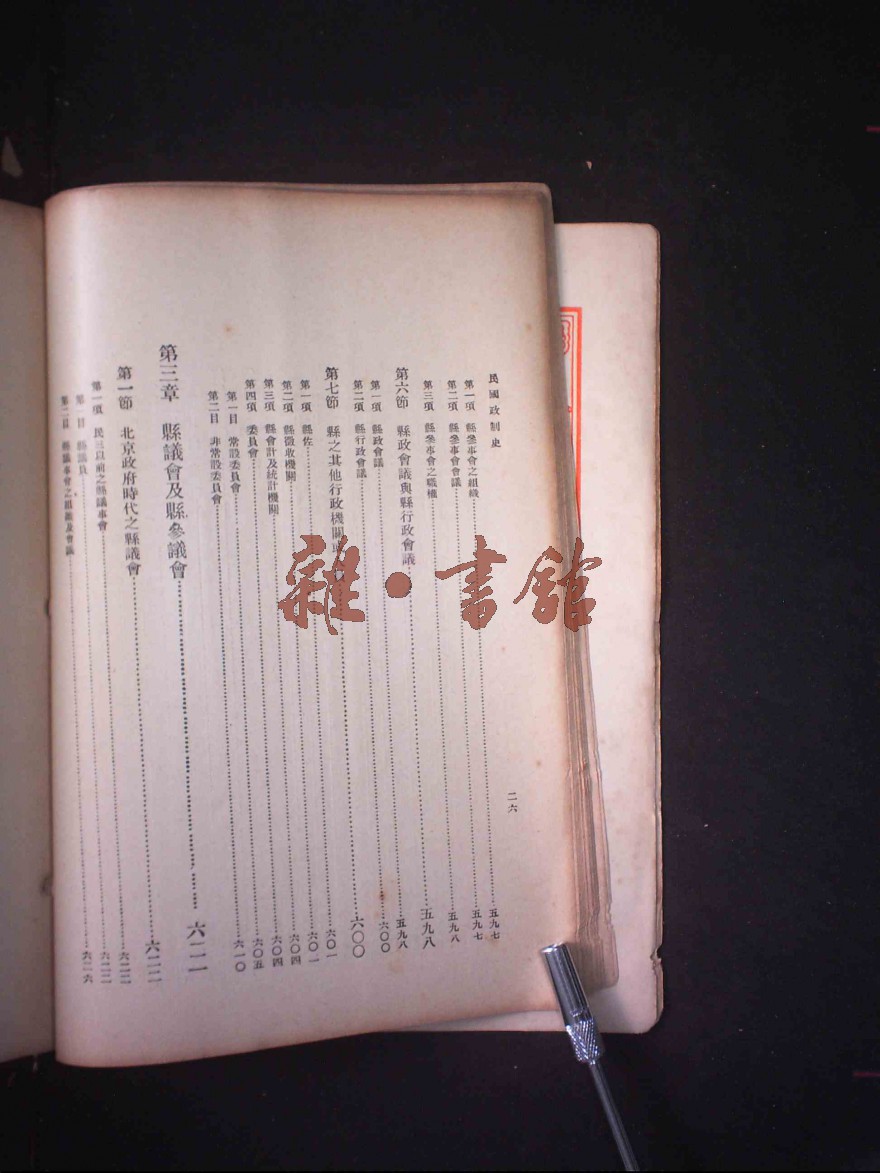 民國政制史
二六
第一項 縣參事會之組織……五九七
第二項 縣參事會會議……五九七
第三項 縣參事會之職權……五九八
第六節 縣政會議與縣行政會議……五九八
第一項 縣政會議……五九八
第二項 縣行政會議……六〇〇
第七節 縣之其他行政機關……六〇〇
第一項 縣佐……六〇一
第二項 縣徵收機關……六〇一
第三項 縣會計及統計機關……六〇四
第四項 委員會……六〇四
第一目 常設委員會……六〇五
第二目 非常設委員會……六一〇
第三章 縣議會及縣參議會……六二一
第一節 北京政府時代之縣議會……六二二
第一項 民三以前之縣議事會……六二二
第一目 縣議員……六二二
第二目 縣議事會之組織及會議……六二六
雜·書館